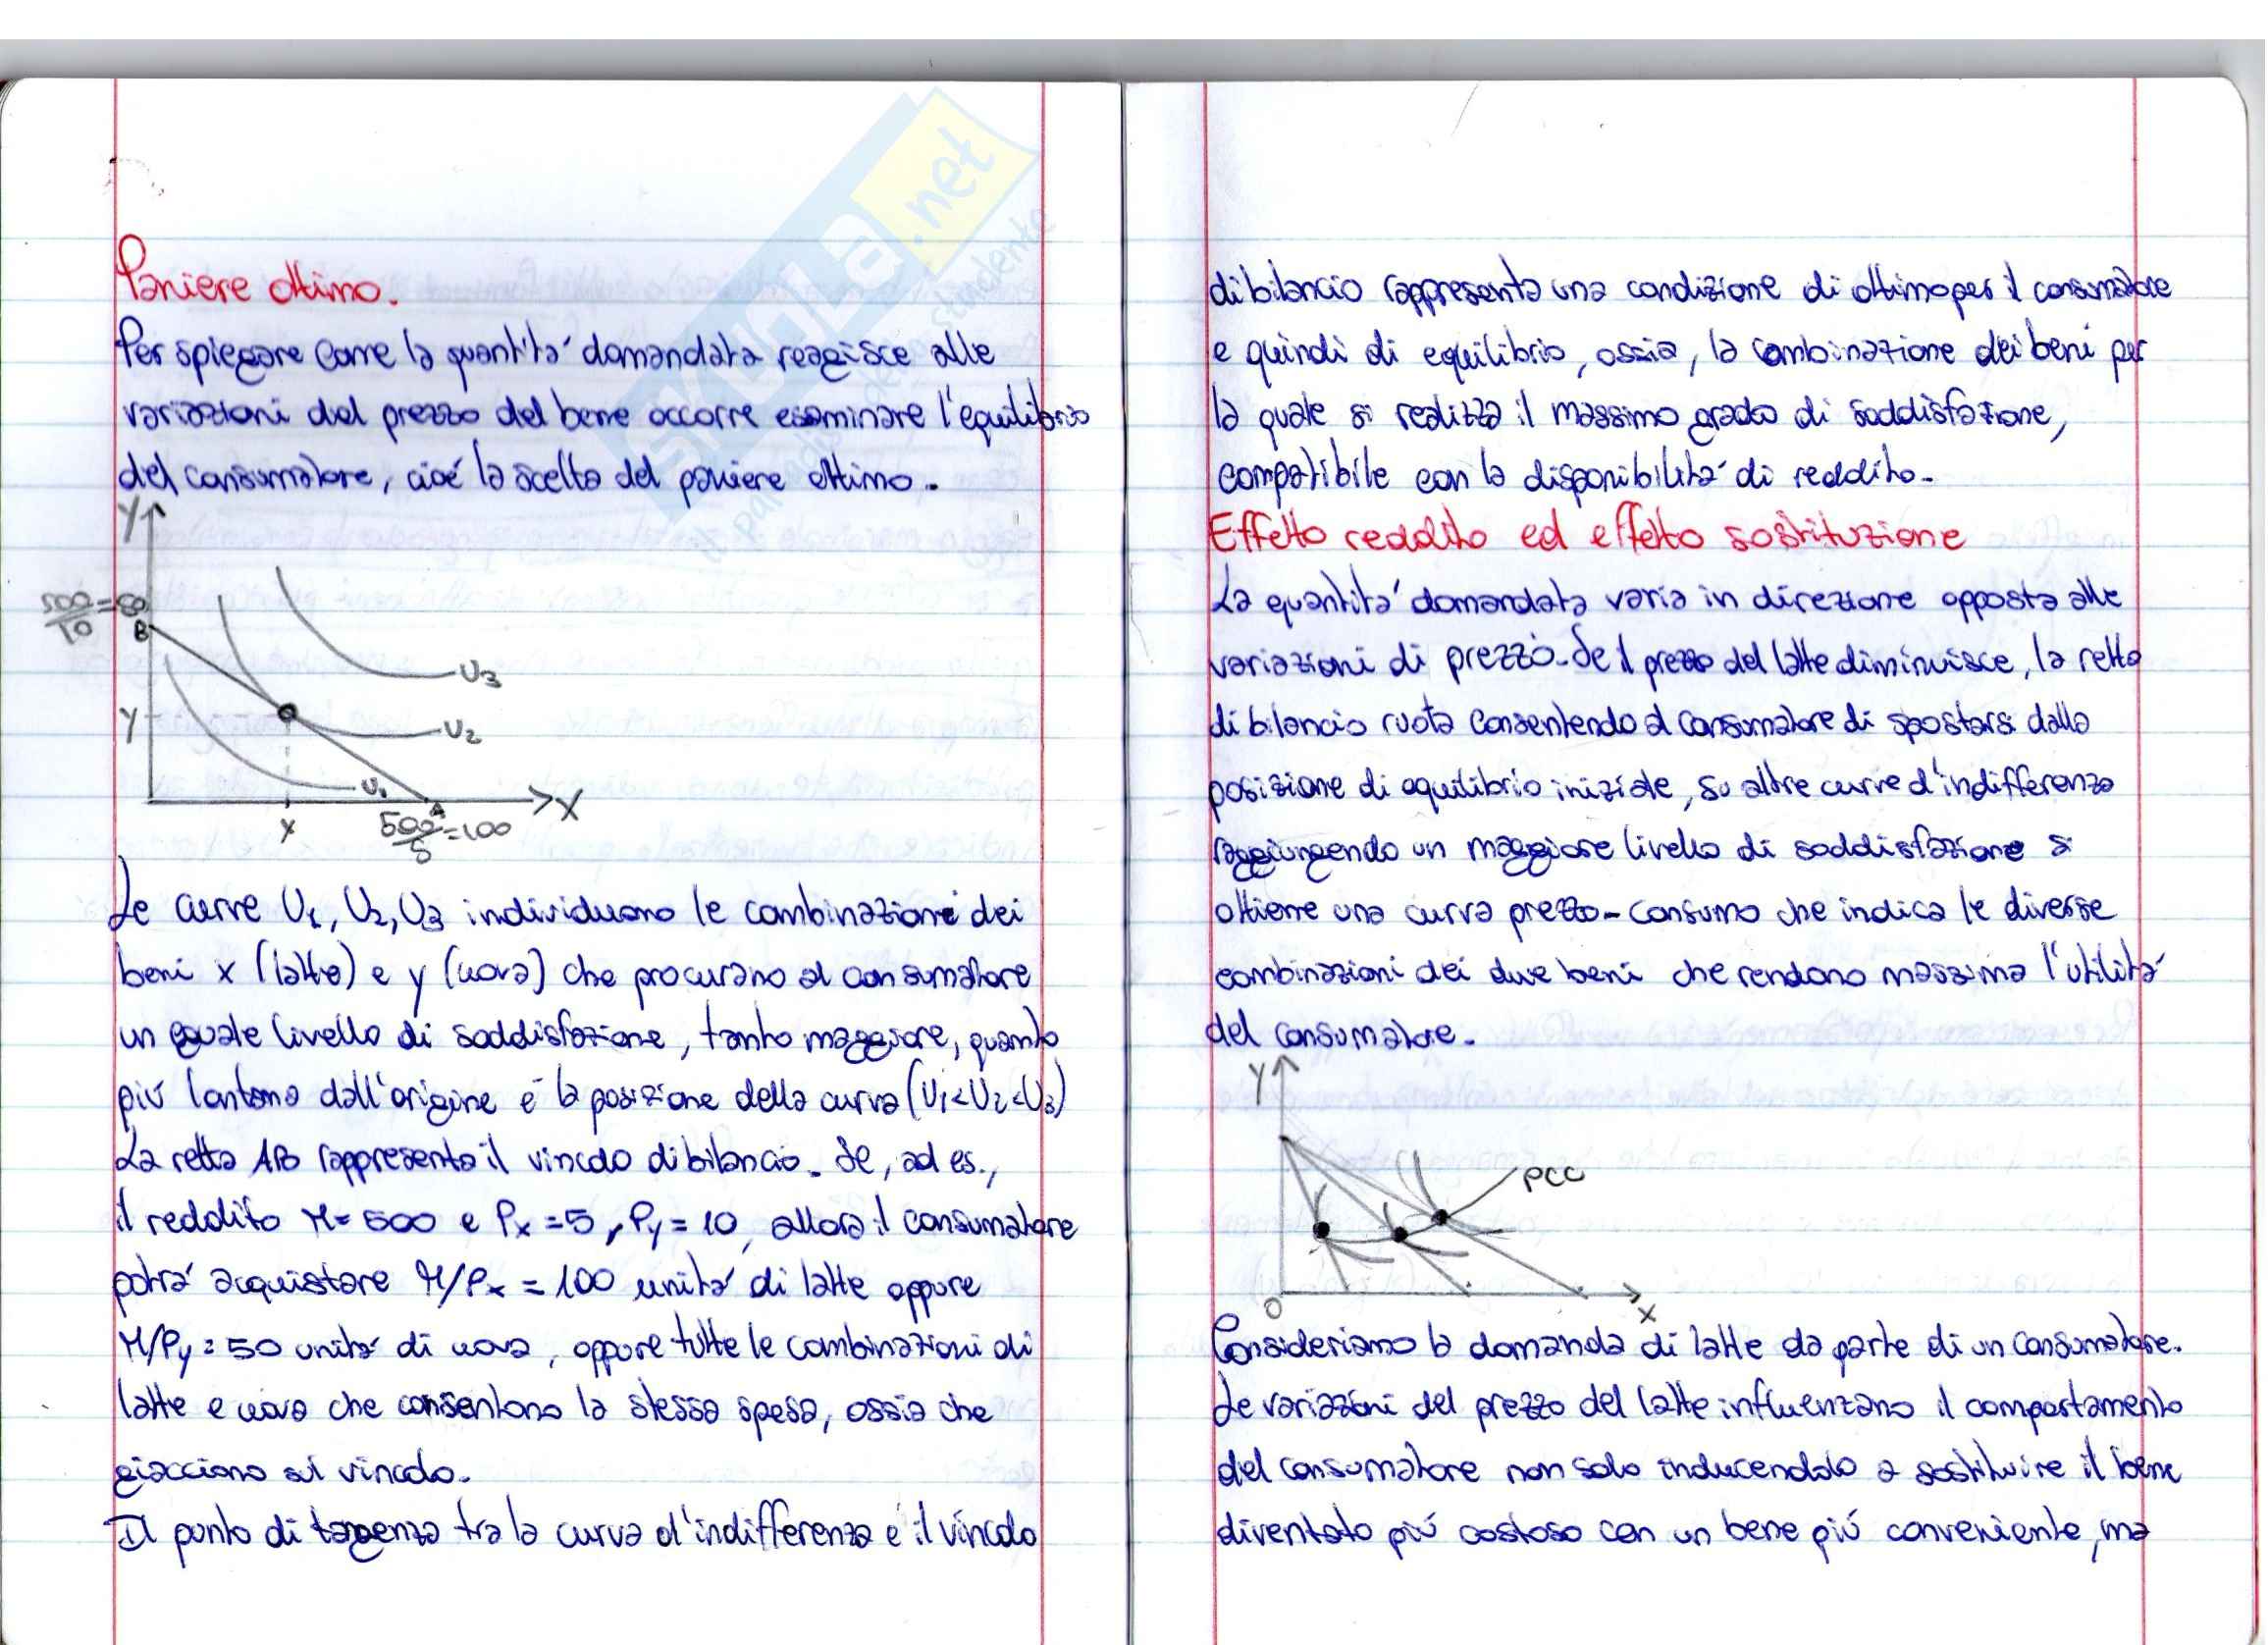 Paniere ottimo.
Per spiegare come la quantità domandata reagisce alle
variazioni del prezzo del bene occorre esaminare l'equilibrio
del consumatore, cioé la scelta del paniere ottimo.
Y
500/10=50
B
U3
Y
U2
U1
A
X
X
500/5=100
Le curve U1, U2, U3 individuano le combinazioni dei
beni x (latte) e y (uova) che procurano al consumatore
un eguale livello di soddisfazione, tanto maggiore, quanto
più lontana dall'origine è la posizione della curva (U1<U2<U3)
La retta AB rappresenta il vincolo di bilancio. Se, ad es.,
il reddito M=500 e Px=5, Py=10, allora il consumatore
potrà acquistare M/Px = 100 unità di latte oppure
M/Py = 50 unità di uova, oppure tutte le combinazioni di
latte e uova che consentono la stessa spesa, ossia che
giacciono sul vincolo.
Il punto di tangenza tra la curva d'indifferenza e il vincolo
di bilancio rappresenta una condizione di ottimo per il consumatore
e quindi di equilibrio, ossia, la combinazione dei beni per
la quale si realizza il massimo grado di soddisfazione,
compatibile con la disponibilità di reddito.
Effetto reddito ed effetto sostituzione
La quantità domandata varia in direzione opposta alle
variazioni di prezzo. Se il prezzo del latte diminuisce, la retta
di bilancio ruota consentendo al consumatore di spostarsi dalla
posizione di equilibrio iniziale, su altre curve d'indifferenza
raggiungendo un maggiore livello di soddisfazione si
ottiene una curva prezzo-consumo che indica le diverse
combinazioni dei due beni che rendono massima l'utilità
del consumatore.
Y
PCC
O
X
Consideriamo la domanda di latte da parte di un consumatore.
Le variazioni del prezzo del latte influenzano il comportamento
del consumatore non solo inducendolo a sostituire il bene
diventato più costoso con un bene più conveniente, ma
SKUOLA.net